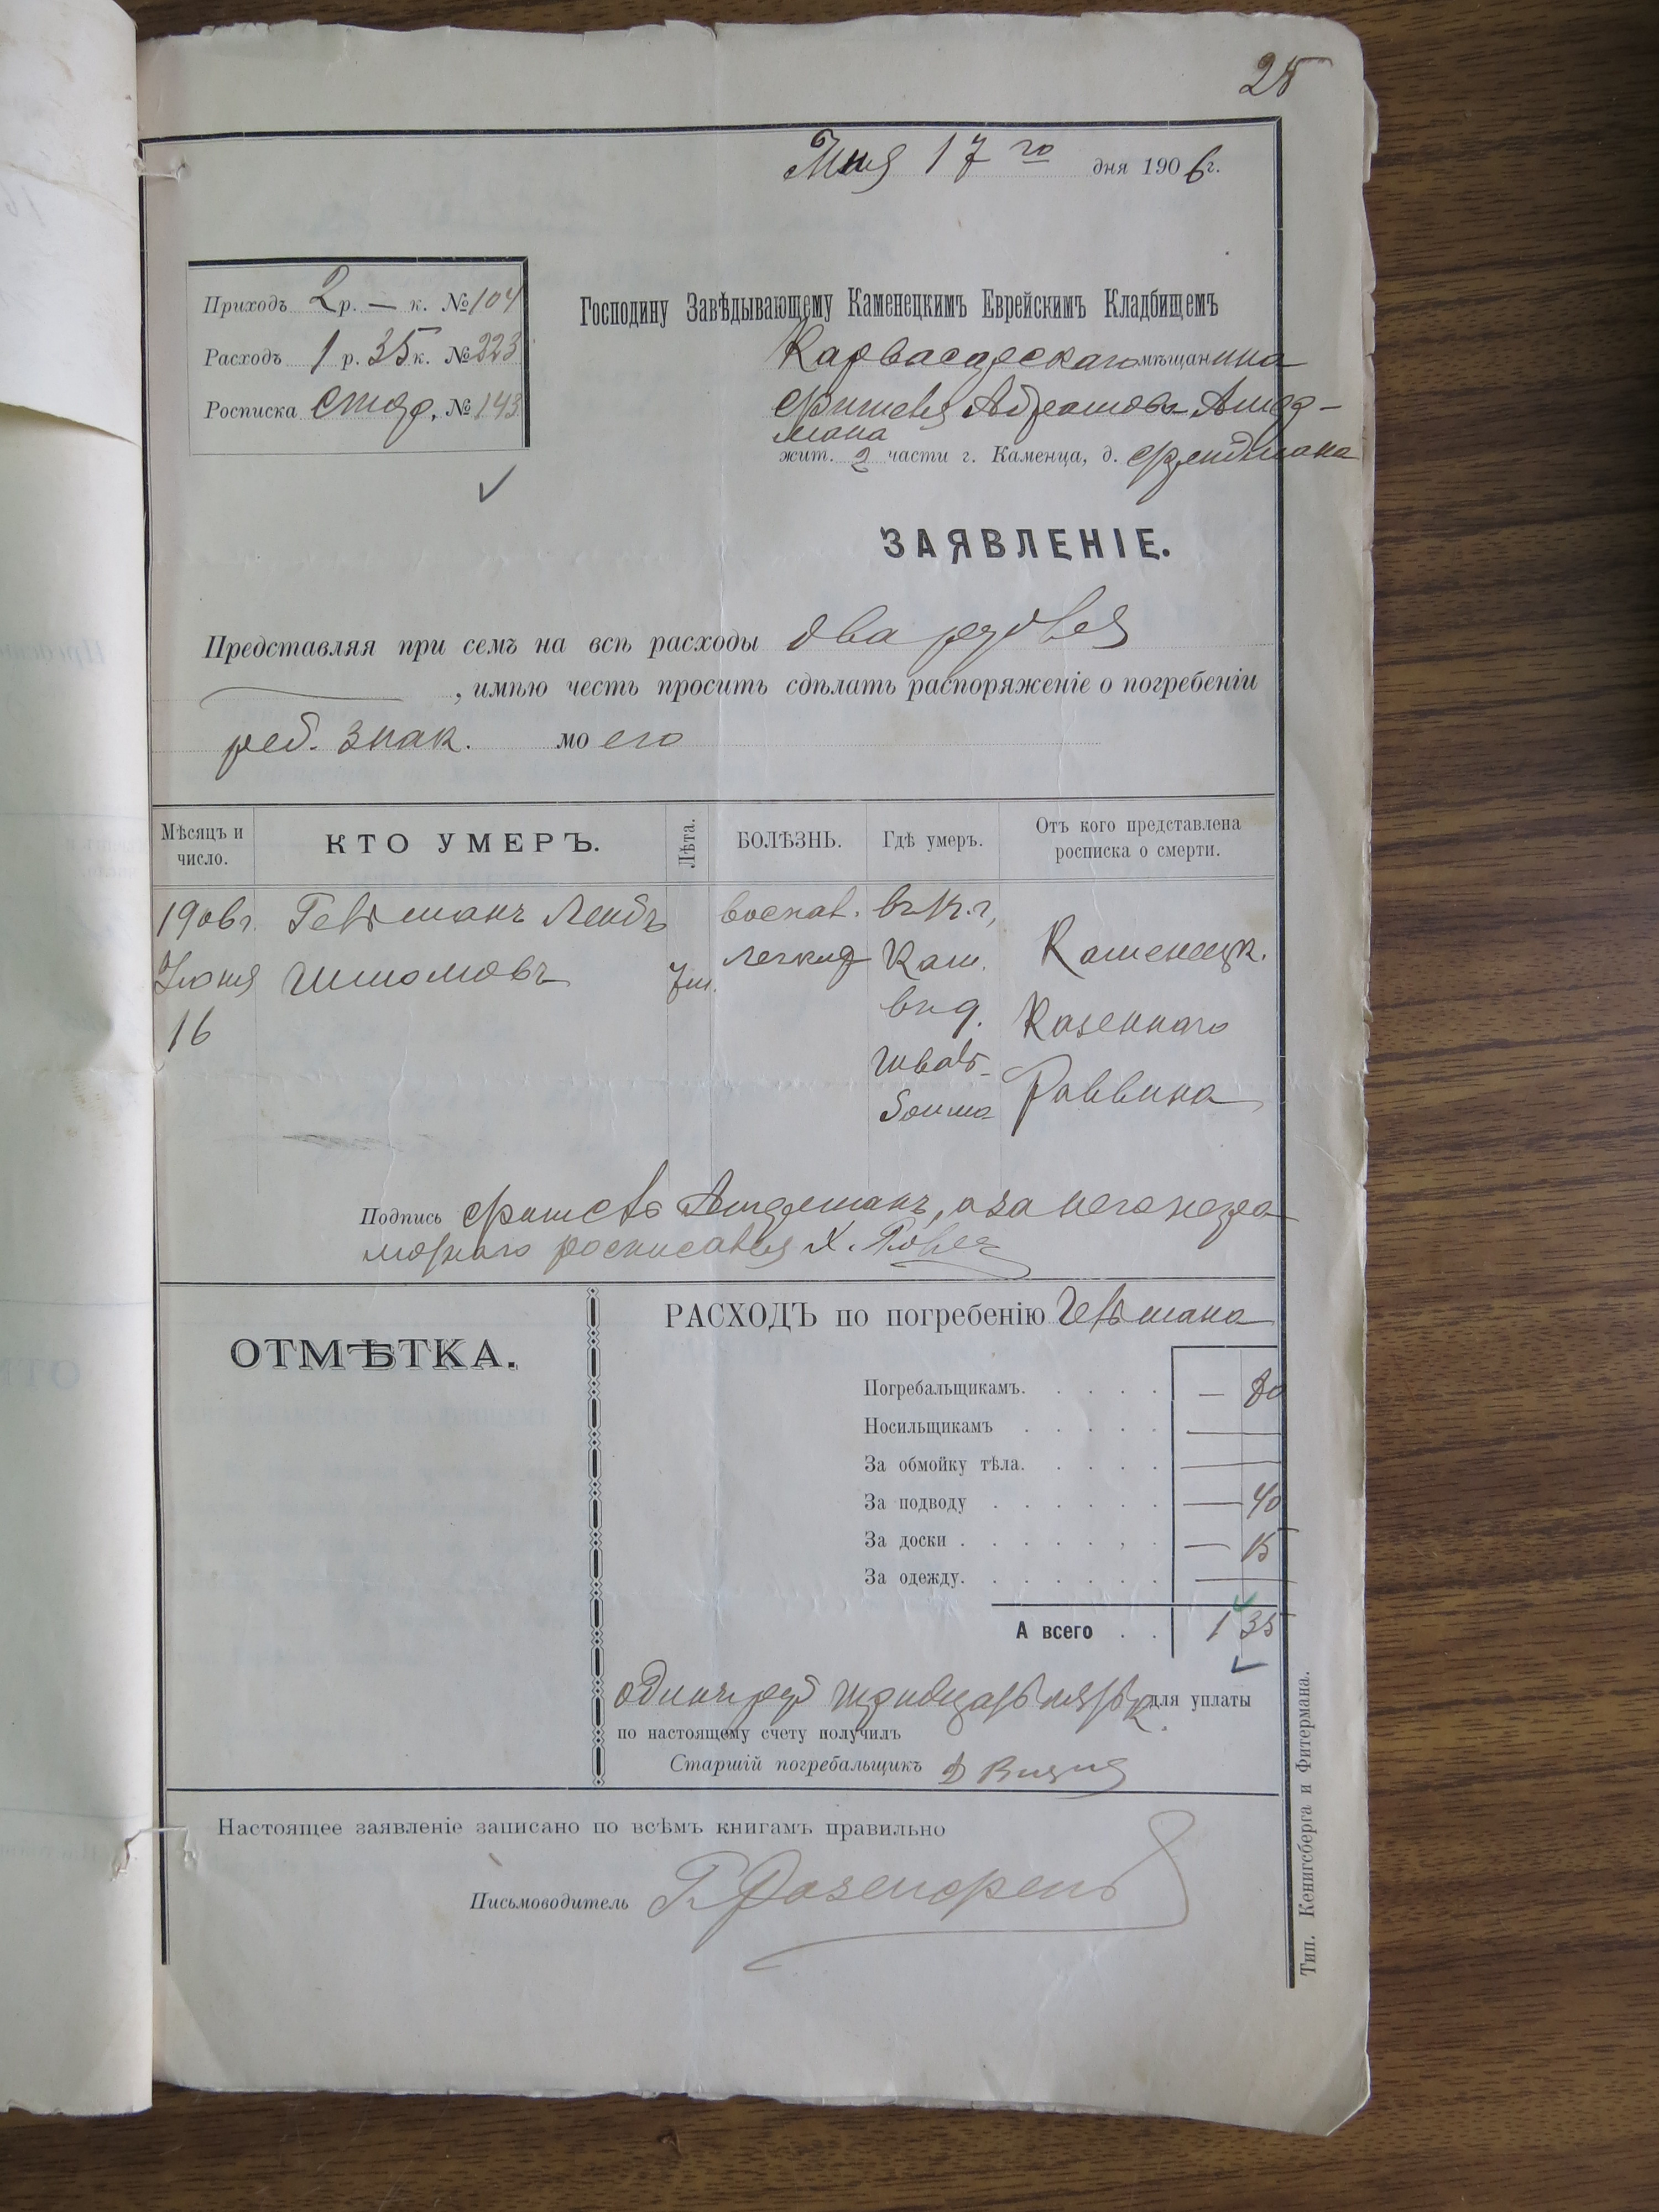 25
17 го дня 1906 г.
Приходъ 2 р. — к. № 104
Расходъ 1 р. 35 к. № 223
Росписка № 143
Господину Завѣдывающему Каменецкимъ Еврейскимъ Кладбищемъ
Карвасарскаго мѣщанина
Абрамова
мана
жит. 2 части г. Каменца, д. Фридмана
ЗАЯВЛЕНІЕ.
Представляя при семъ на всѣ расходы два рубля
, имѣю честь просить сдѣлать распоряженіе о погребеніи
реб. знак. моего
Мѣсяцъ и число. КТО УМЕРЪ. Лѣта. БОЛѢЗНЬ. Гдѣ умеръ. Отъ кого представлена росписка о смерти.
1906 г. Гельманъ Лейбъ воспал. въ К.г,
Іюня Шмомовъ 7 м. легкихъ Кам. Каменецк.
16 въ д. Казеннаго
Шваль- Раввина
Подпись а за него негра
мотнаго росписался Х.
РАСХОДЪ по погребенію Гельмана
ОТМѢТКА.
Погребальщикамъ. — 80
Носильщикамъ —
За обмойку тѣла. —
За подводу — 40
За доски — 15
За одежду. —
А всего 1 35
одинъ руб тридцать пять к. для уплаты
по настоящему счету получилъ
Старшій погребальщикъ
Настоящее заявленіе записано по всѣмъ книгамъ правильно
Письмоводитель
Тип. Кенигсберга и Фитермана.